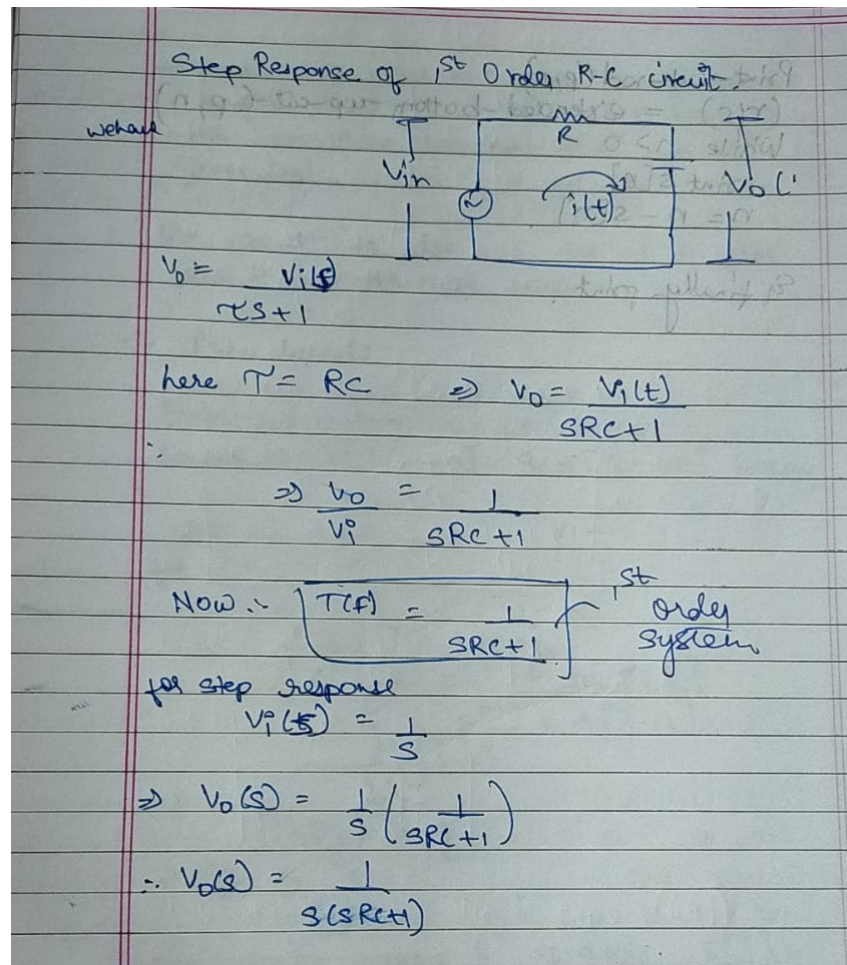 Step Response of 1st Order R-C circuit.
we have
R
Vin
i(t)
Vo (
V0 = Vi(s) / τS+1
here τ = RC ⇒ V0 = Vi(t) / SRC+1
∴
⇒ V0 / Vi = 1 / SRC+1
Now :- T(f) = 1 / SRC+1 1st Order System
for step response
Vi(s) = 1 / S
⇒ V0(S) = 1/S ( 1 / SRC+1 )
∴ V0(s) = 1 / S(SRC+1)